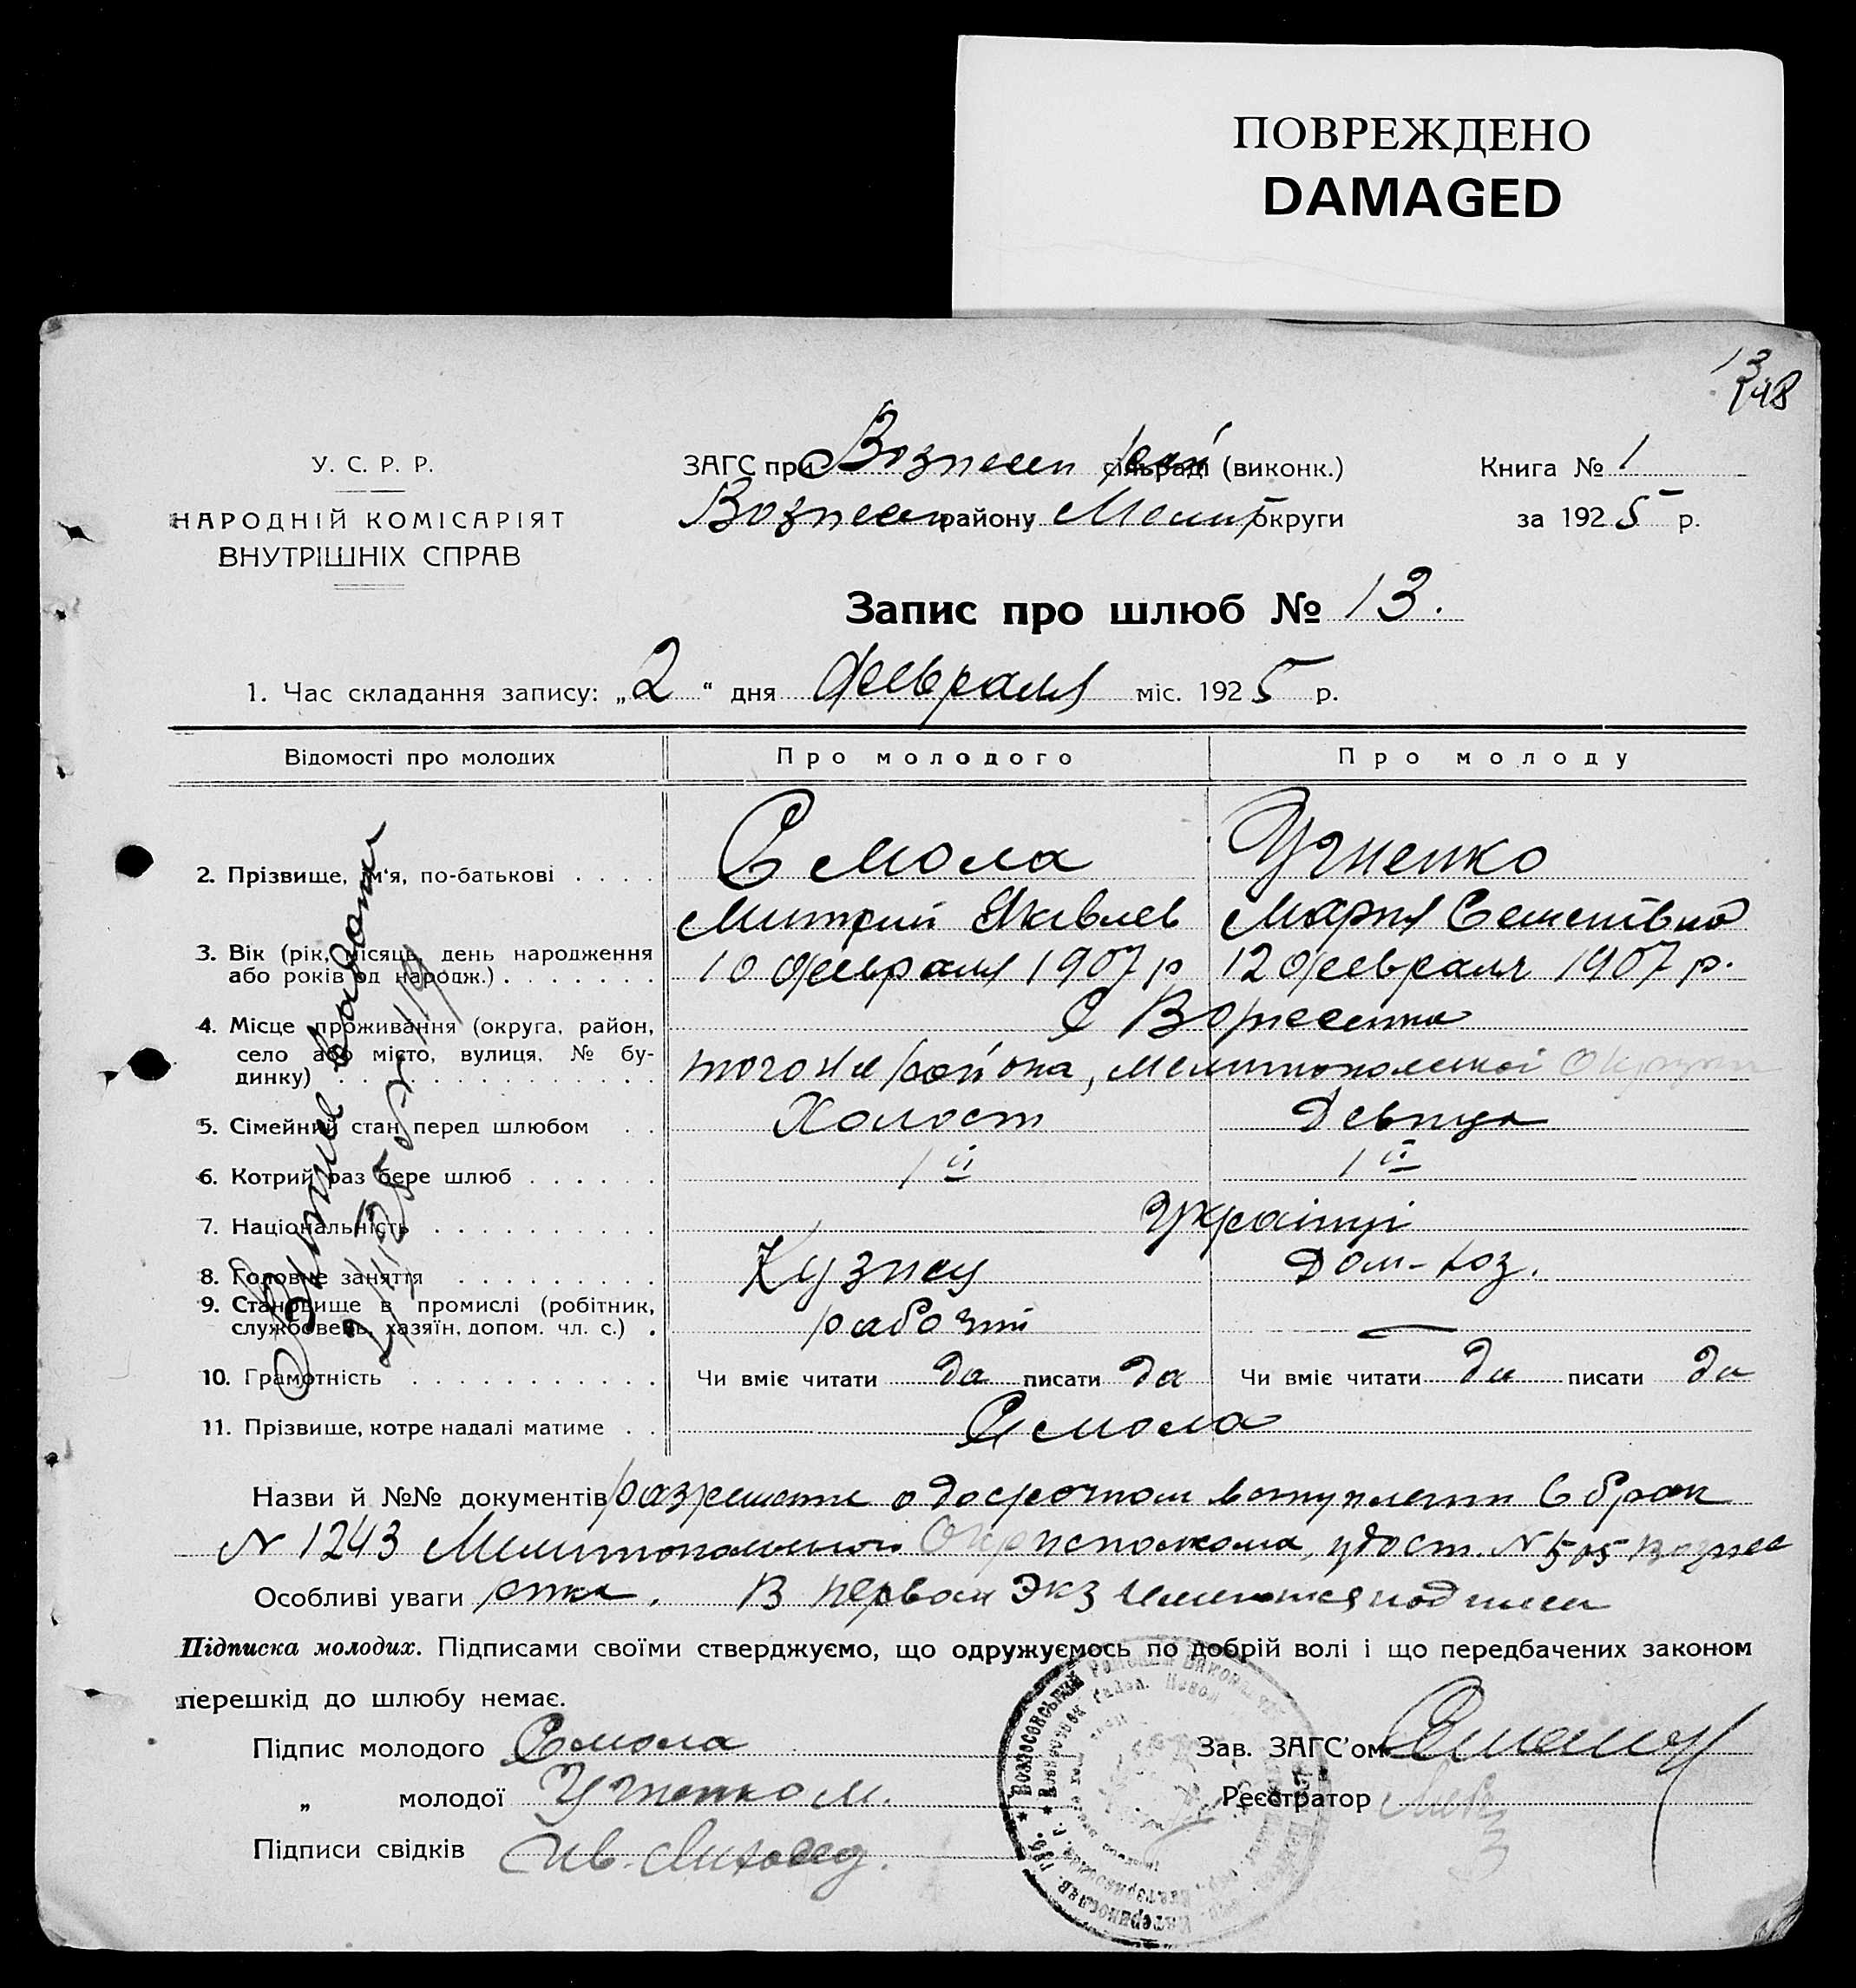 ПОВРЕЖДЕНО
DAMAGED
13
148
У. С. Р. Р.
НАРОДНІЙ КОМІСАРІЯТ
ВНУТРІШНІХ СПРАВ
ЗАГС при Вознесен рай сільраді (виконк.)
Книга № 1
Вознесен району Мелит округи
за 1925 р.
Запис про шлюб № 13.
1. Час складання запису: „2“ дня февраля міс. 1925 р.
Відомості про молодих
Про молодого
Про молоду
2. Прізвище, ім'я, по-батькові . . . .
Смола
Митрий Яковлев
Марія
3. Вік (рік, місяць, день народження
або років од народж.) . . . . . . .
10 февраля 1907 р
12 февраля 1907 р.
4. Місце проживання (округа, район,
село або місто, вулиця, № бу-
динку) . . . . . . . . . . . . . .
С Вознесенка
того же района, Мелитопольской Округи
5. Сімейний стан перед шлюбом . .
Холост
Девица
6. Котрий раз бере шлюб . . . . . .
1й
1й
7. Національність . . . . . . . . . .
Українці
8. Головне заняття . . . . . . . . .
Кузнец
Дом-хоз.
9. Становище в промислі (робітник,
службовець, хазяїн, допом. чл. с.) .
рабочий
—
10. Грамотність . . . . . . . . . . .
Чи вміє читати да писати да
Чи вміє читати да писати да
11. Прізвище, котре надалі матиме . .
Смола
Назви й №№ документів разрешение о досрочном вступлении в брак
N 1243 Мелитопольского Окрисполкома, удост. N 505 Вознес
Особливі уваги енка. В первом экз имеются подписи
Підписка молодих. Підписами своїми стверджуємо, що одружуємось по добрій волі і що передбачених законом
перешкід до шлюбу немає.
Підпис молодого Смола
Зав. ЗАГС'ом
„ молодої
Реєстратор
Підписи свідків